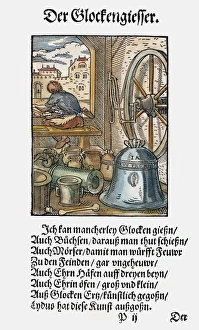 Der Glockengiesser.
Ich kan mancherley Glocken gießn/
Auch Büchsen/ darauß man thut schießn/
Auch Mörser/ damit man würfft Feuwr
Zu den Feinden/ gar vngeheuwr/
Auch Ehrn Häfen auff dreyen beyn/
Auch Ehrin öfen/ groß vnd klein/
Auß Glocken Ertz/ künstlich gegoßn/
Lydus hat diese Kunst außgoßn.
P ij Der